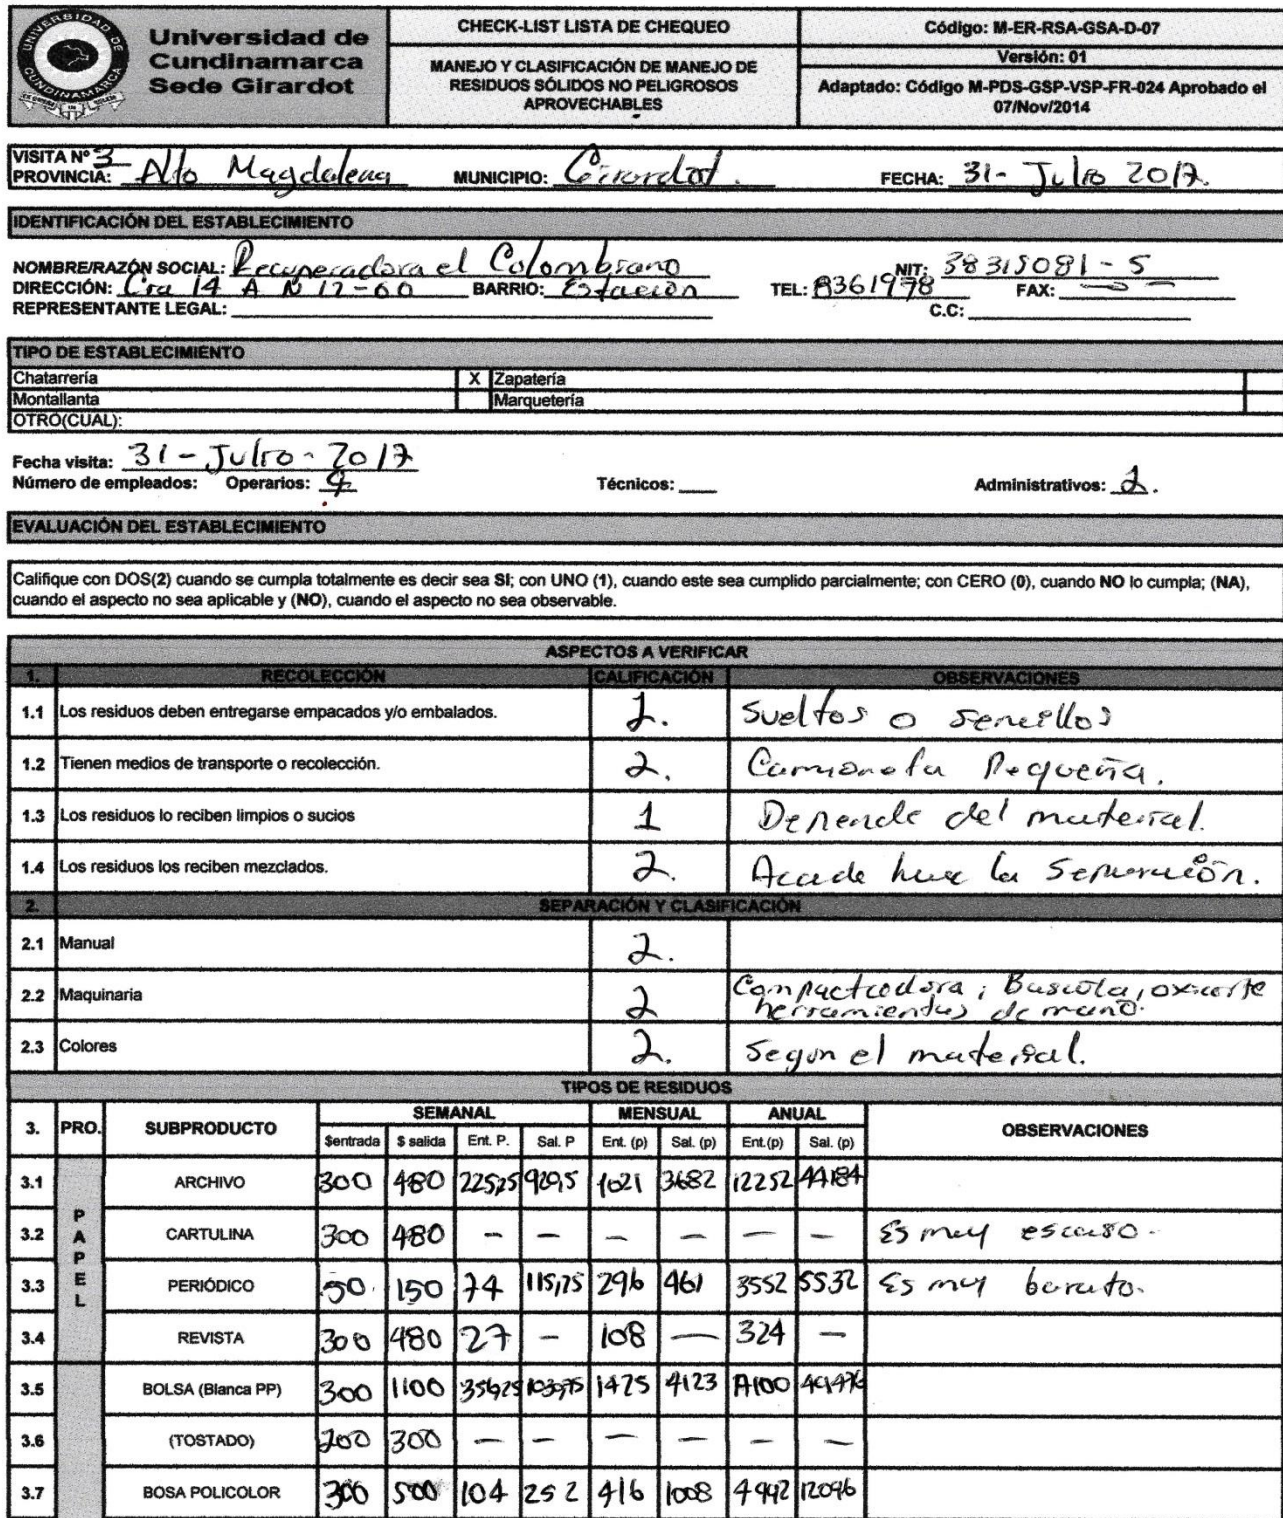 UNIVERSIDAD DE
CUNDINAMARCA
Universidad de
Cundinamarca
Sede Girardot
CHECK-LIST LISTA DE CHEQUEO
MANEJO Y CLASIFICACIÓN DE MANEJO DE
RESIDUOS SÓLIDOS NO PELIGROSOS
APROVECHABLES
Código: M-ER-RSA-GSA-D-07
Versión: 01
Adaptado: Código M-PDS-GSP-VSP-FR-024 Aprobado el
07/Nov/2014
VISITA Nº 3
PROVINCIA: Alto Magdalena MUNICIPIO: Girardot. FECHA: 31- Julio 2017.
IDENTIFICACIÓN DEL ESTABLECIMIENTO
NOMBRE/RAZÓN SOCIAL: Recuperadora el Colombiano NIT: 38315081-5
DIRECCIÓN: Cra 14 A N 12-60 BARRIO: Estación TEL: 8361978 FAX:
REPRESENTANTE LEGAL: C.C:
TIPO DE ESTABLECIMIENTO
Chatarrería X Zapatería
Montallanta Marquetería
OTRO(CUAL):
Fecha visita: 31-Julio-2017
Número de empleados: Operarios: Técnicos: Administrativos: 2.
EVALUACIÓN DEL ESTABLECIMIENTO
Califique con DOS(2) cuando se cumpla totalmente es decir sea SI; con UNO (1), cuando este sea cumplido parcialmente; con CERO (0), cuando NO lo cumpla; (NA),
cuando el aspecto no sea aplicable y (NO), cuando el aspecto no sea observable.
ASPECTOS A VERIFICAR
1. RECOLECCIÓN CALIFICACIÓN OBSERVACIONES
1.1 Los residuos deben entregarse empacados y/o embalados. Sueltos o sencillos
1.2 Tienen medios de transporte o recolección. 2. Camioneta Pequeña.
1.3 Los residuos lo reciben limpios o sucios 1 Depende del material.
1.4 Los residuos los reciben mezclados. 2. la Separación.
2. SEPARACIÓN Y CLASIFICACIÓN
2.1 Manual 2.
2.2 Maquinaria 2 Compactadora, Bascula, oxicorte
herramientas de mano.
2.3 Colores 2. Segun el material.
TIPOS DE RESIDUOS
3. PRO. SUBPRODUCTO SEMANAL MENSUAL ANUAL OBSERVACIONES
$entrada $ salida Ent. P. Sal. P Ent. (p) Sal. (p) Ent.(p) Sal. (p)
PAPEL
3.1 ARCHIVO 300 480 920,5 1021 3682 12252 44184
3.2 CARTULINA 300 480 – – – – – – Es muy escaso.
3.3 PERIÓDICO 50. 150 74 115,25 296 461 3552 5532 Es muy barato.
3.4 REVISTA 300 480 27 – 108 – 324 –
3.5 BOLSA (Blanca PP) 300 1100 356,25 1425 4123
3.6 (TOSTADO) 200 300 – – – – – –
3.7 BOSA POLICOLOR 300 500 104 252 416 1008 4992 12096